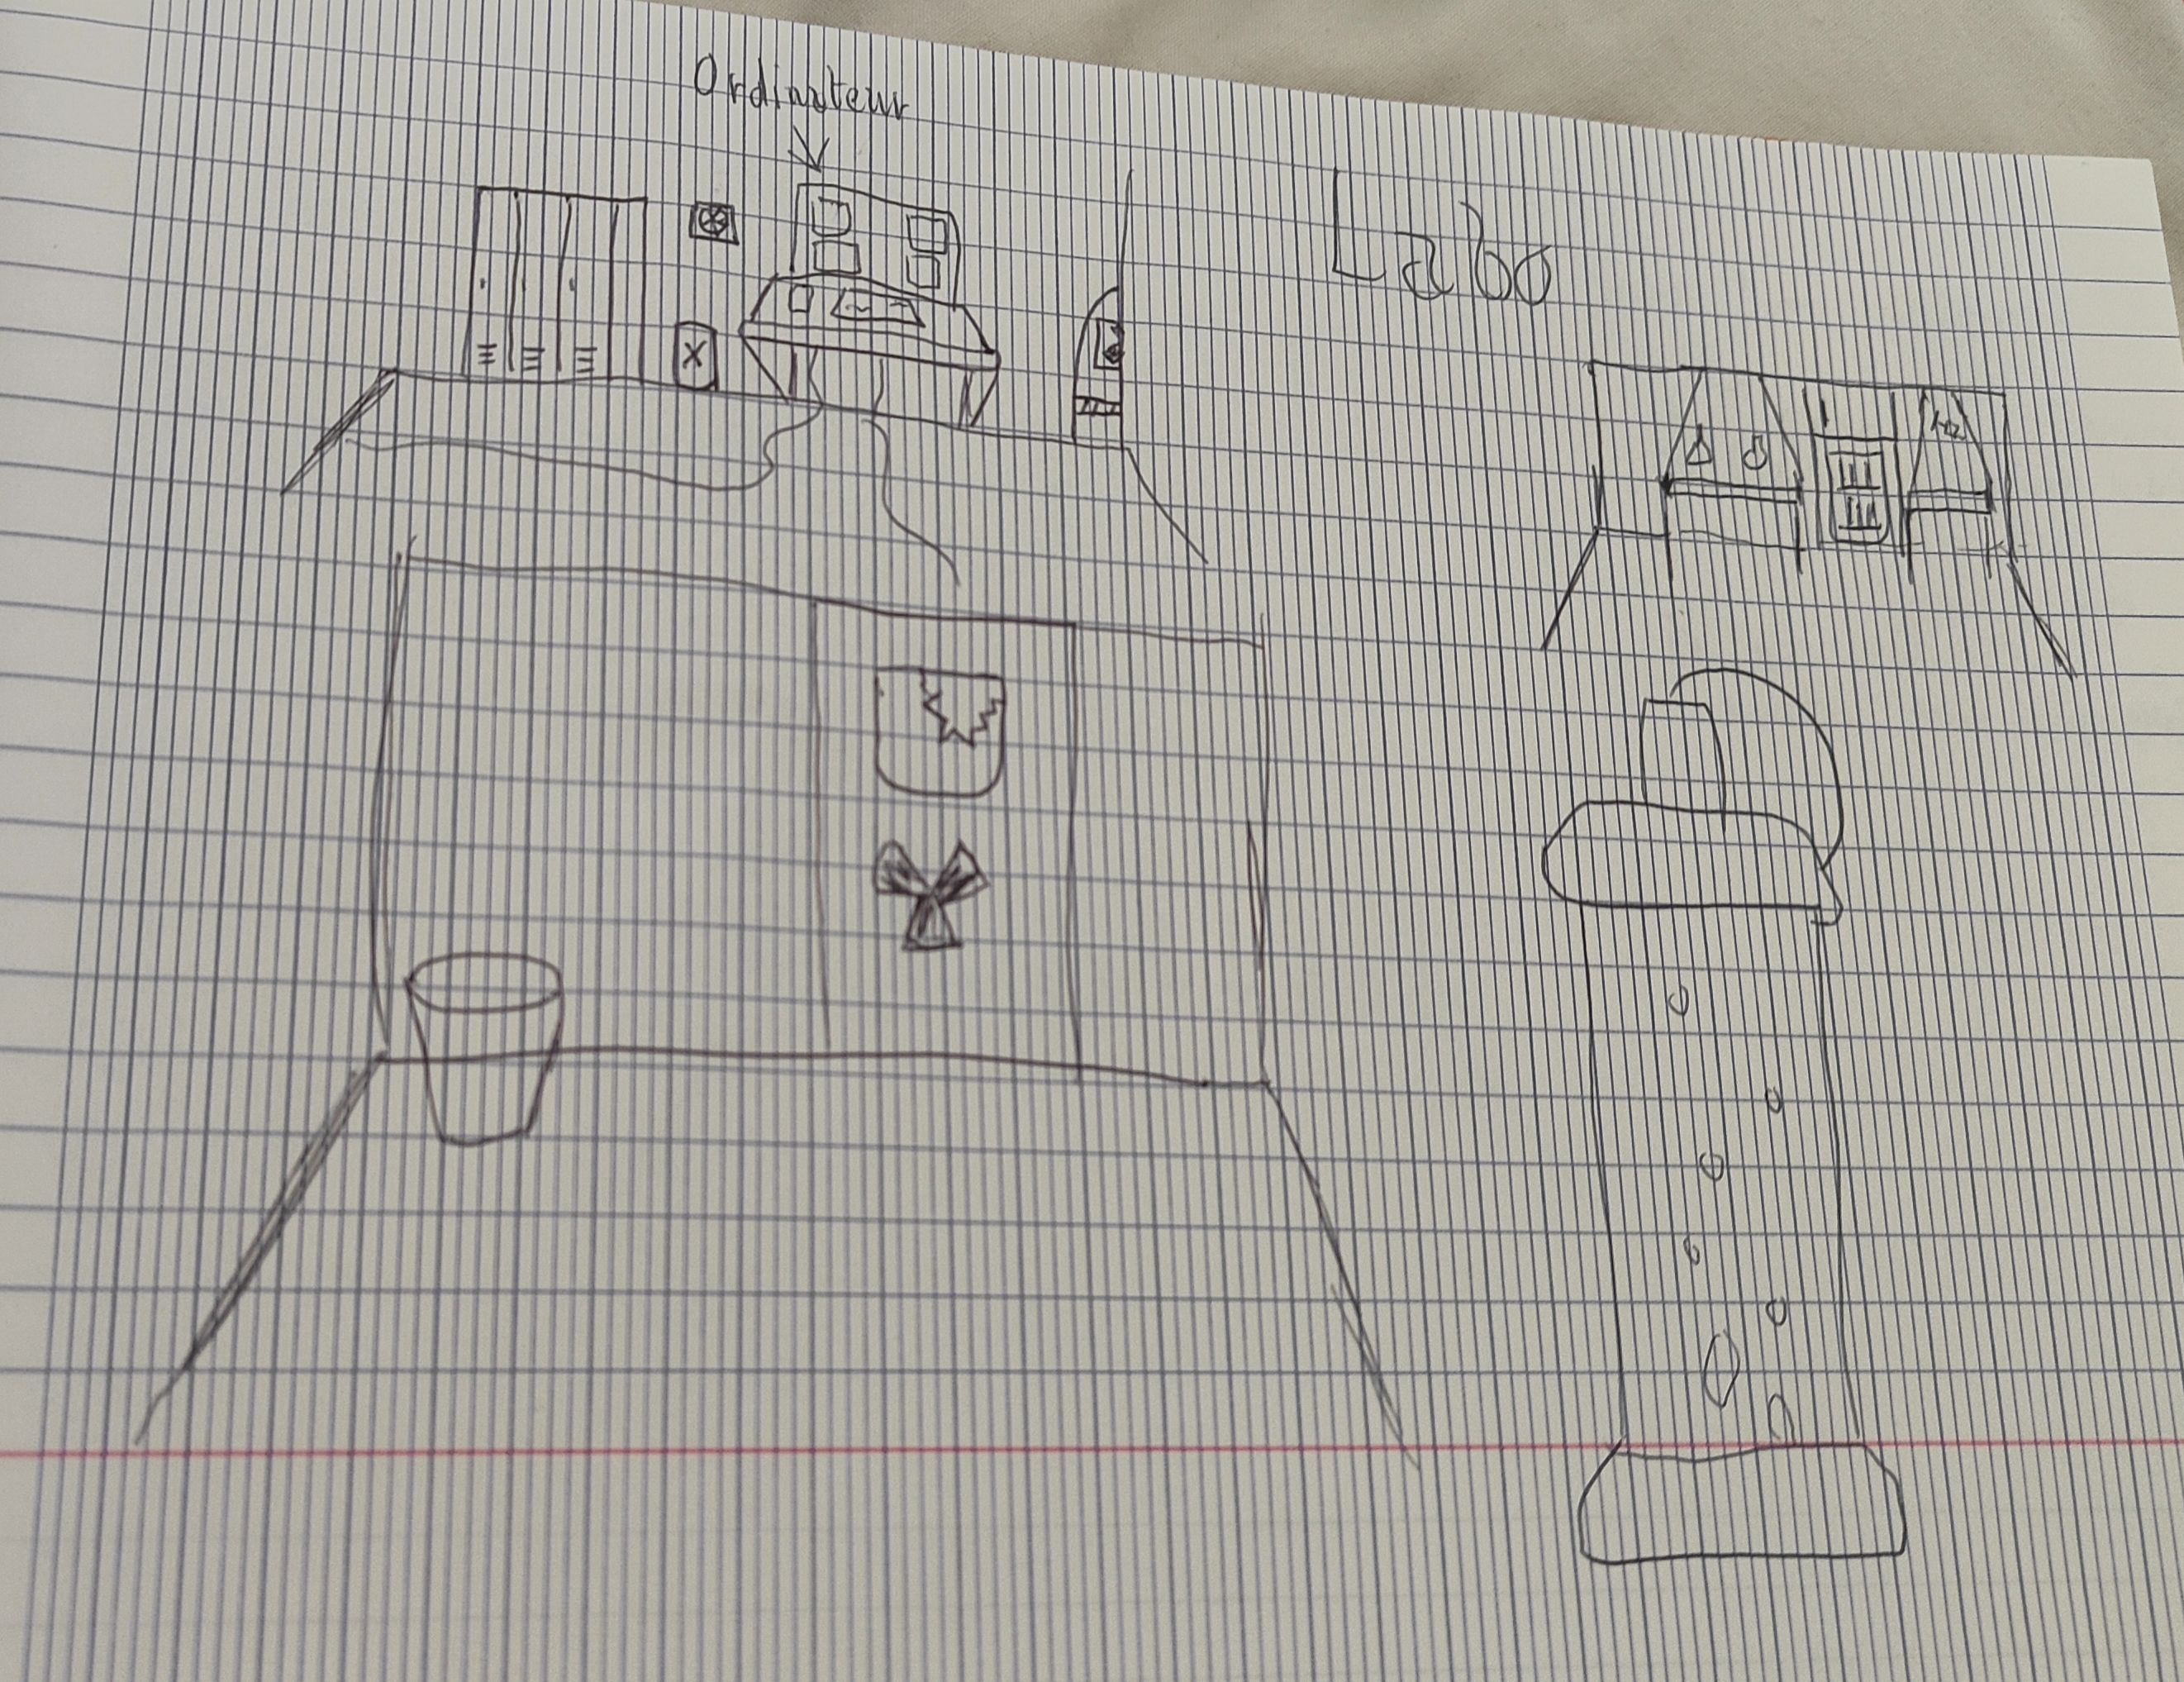 Ordinateur
Labo